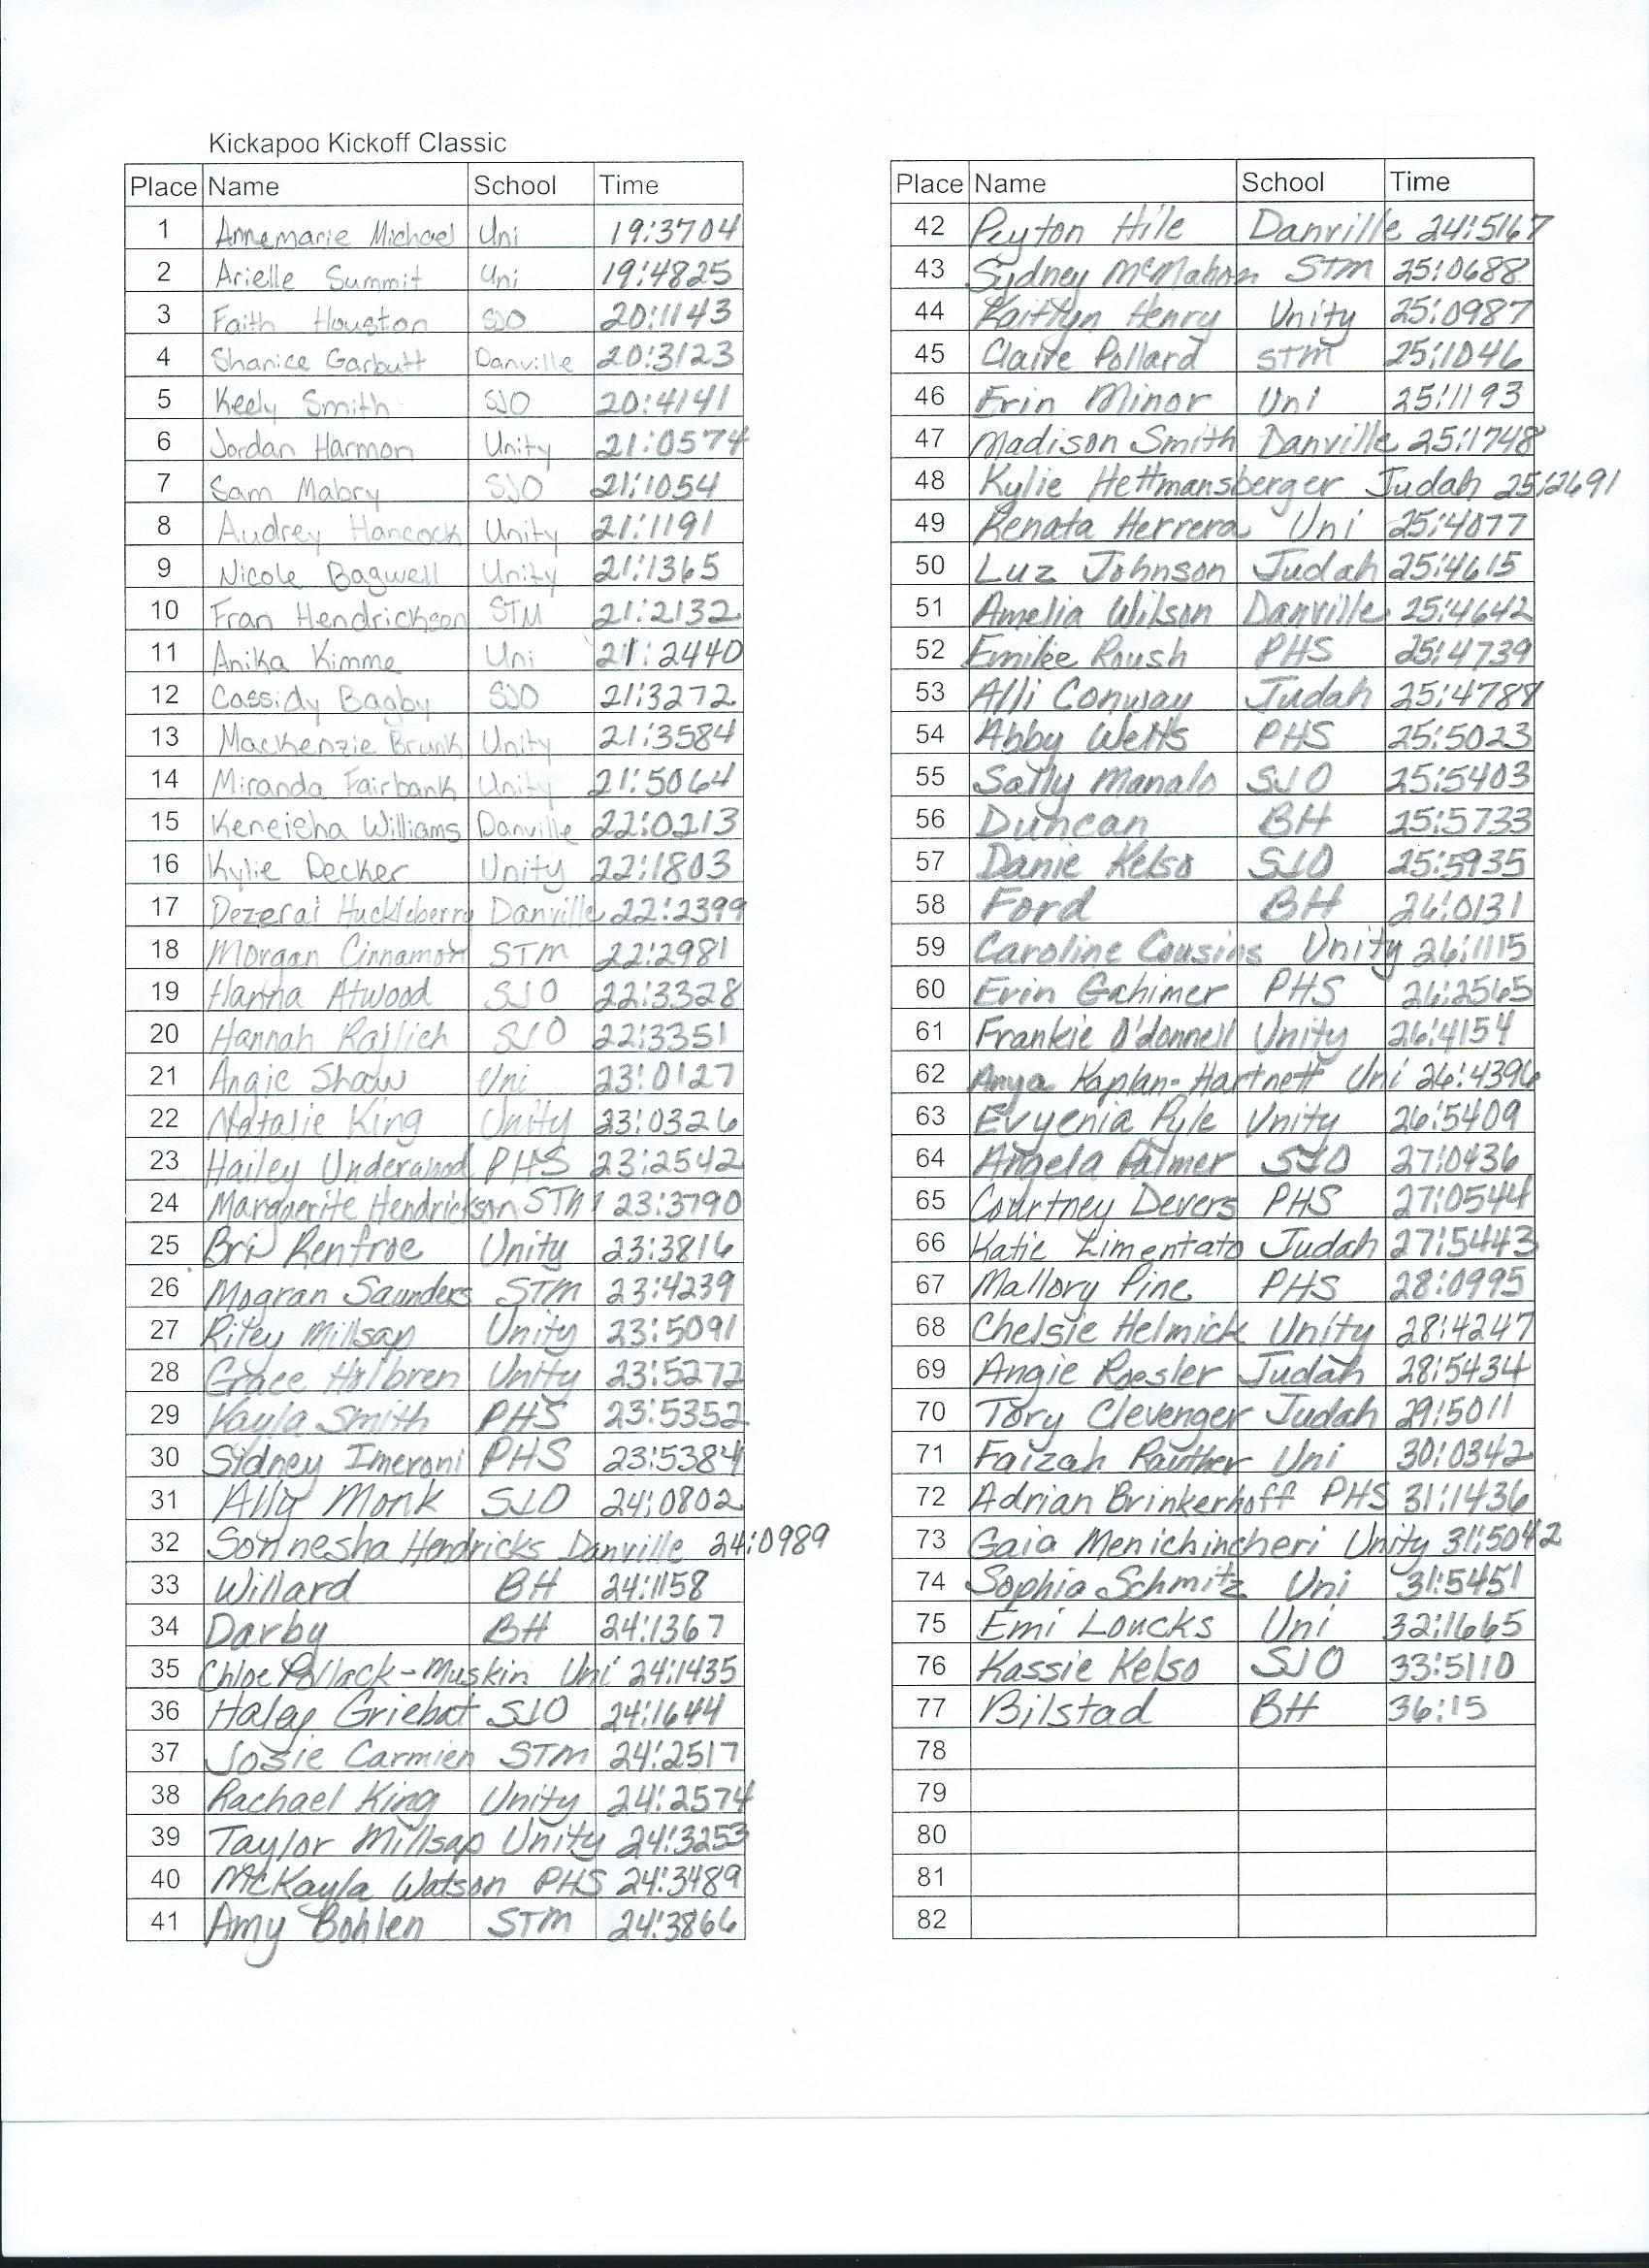 Kickapoo Kickoff Classic
Place Name School Time
1 Annemarie Michael Uni 19:3704
2 Arielle Summit Uni 19:4825
3 Faith Houston SJO 20:1143
4 Shanice Garbutt Danville 20:3123
5 Keely Smith SJO 20:4141
6 Jordan Harmon Unity 21:0574
7 Sam Mabry SJO 21:1054
8 Audrey Hancock Unity 21:1191
9 Nicole Bagwell Unity 21:1365
10 Fran Hendrickson STM 21:2132
11 Anika Kimme Uni 21:2440
12 Cassidy Bagby SJO 21:3272
13 Mackenzie Brunk Unity 21:3584
14 Miranda Fairbank Unity 21:5064
15 Keneisha Williams Danville 22:0213
16 Kylie Decker Unity 22:1803
17 Dezerai Huckleberry Danville 22:2399
18 Morgan Cinnamon STM 22:2981
19 Hanna Atwood SJO 22:3328
20 Hannah Rajlich SJO 22:3351
21 Angie Shaw Uni 23:0127
22 Natalie King Unity 23:0326
23 Hailey Underwood PHS 23:2542
24 Marguerite Hendrickson STM 23:3790
25 Bri Renfroe Unity 23:3816
26 Mogran Saunders STM 23:4239
27 Riley Millsap Unity 23:5091
28 Grace Holbren Unity 23:5272
29 Kayla Smith PHS 23:5352
30 Sidney Imeroni PHS 23:5384
31 Ally Monk SJO 24:0802
32 Sonnesha Hendricks Danville 24:0989
33 Willard BH 24:1158
34 Darby BH 24:1367
35 Chloe Pollack-Muskin Uni 24:1435
36 Haley Griebat SJO 24:1644
37 Josie Carmien STM 24:2517
38 Rachael King Unity 24:2574
39 Taylor Millsap Unity 24:3253
40 McKayla Watson PHS 24:3489
41 Amy Bohlen STM 24:3866
Place Name School Time
42 Peyton Hile Danville 24:5167
43 Sydney McMahon STM 25:0688
44 Kaitlyn Henry Unity 25:0987
45 Claire Pollard STM 25:1046
46 Erin Minor Uni 25:1193
47 Madison Smith Danville 25:1748
48 Kylie Hettmansberger Judah 25:2691
49 Renata Herrera Uni 25:4077
50 Luz Johnson Judah 25:4615
51 Amelia Wilson Danville 25:4642
52 Roush PHS 25:4739
53 Alli Conway Judah 25:4788
54 Abby Wetts PHS 25:5023
55 Sally Manalo SJO 25:5403
56 Duncan BH 25:5733
57 Danie Kelso SJO 25:5935
58 Ford BH 26:0131
59 Caroline Cousins Unity 26:1115
60 Erin Gahimer PHS 26:2565
61 Frankie O'donnell Unity 26:4154
62 Anya Kaplan-Hartnett Uni 26:4396
63 Evyenia Pyle Unity 26:5409
64 Angela Palmer SJO 27:0436
65 Courtney Devers PHS 27:0544
66 Katie Limentato Judah 27:5443
67 Mallory Pine PHS 28:0995
68 Chelsie Helmick Unity 28:4247
69 Angie Roesler Judah 28:5434
70 Tory Clevenger Judah 29:5011
71 Faizah Rauther Uni 30:0342
72 Adrian Brinkerhoff PHS 31:1436
73 Gaia Menichincheri Unity 31:5042
74 Sophia Schmitz Uni 31:5451
75 Emi Loucks Uni 32:1665
76 Kassie Kelso SJO 33:5110
77 Bilstad BH 36:15
78
79
80
81
82